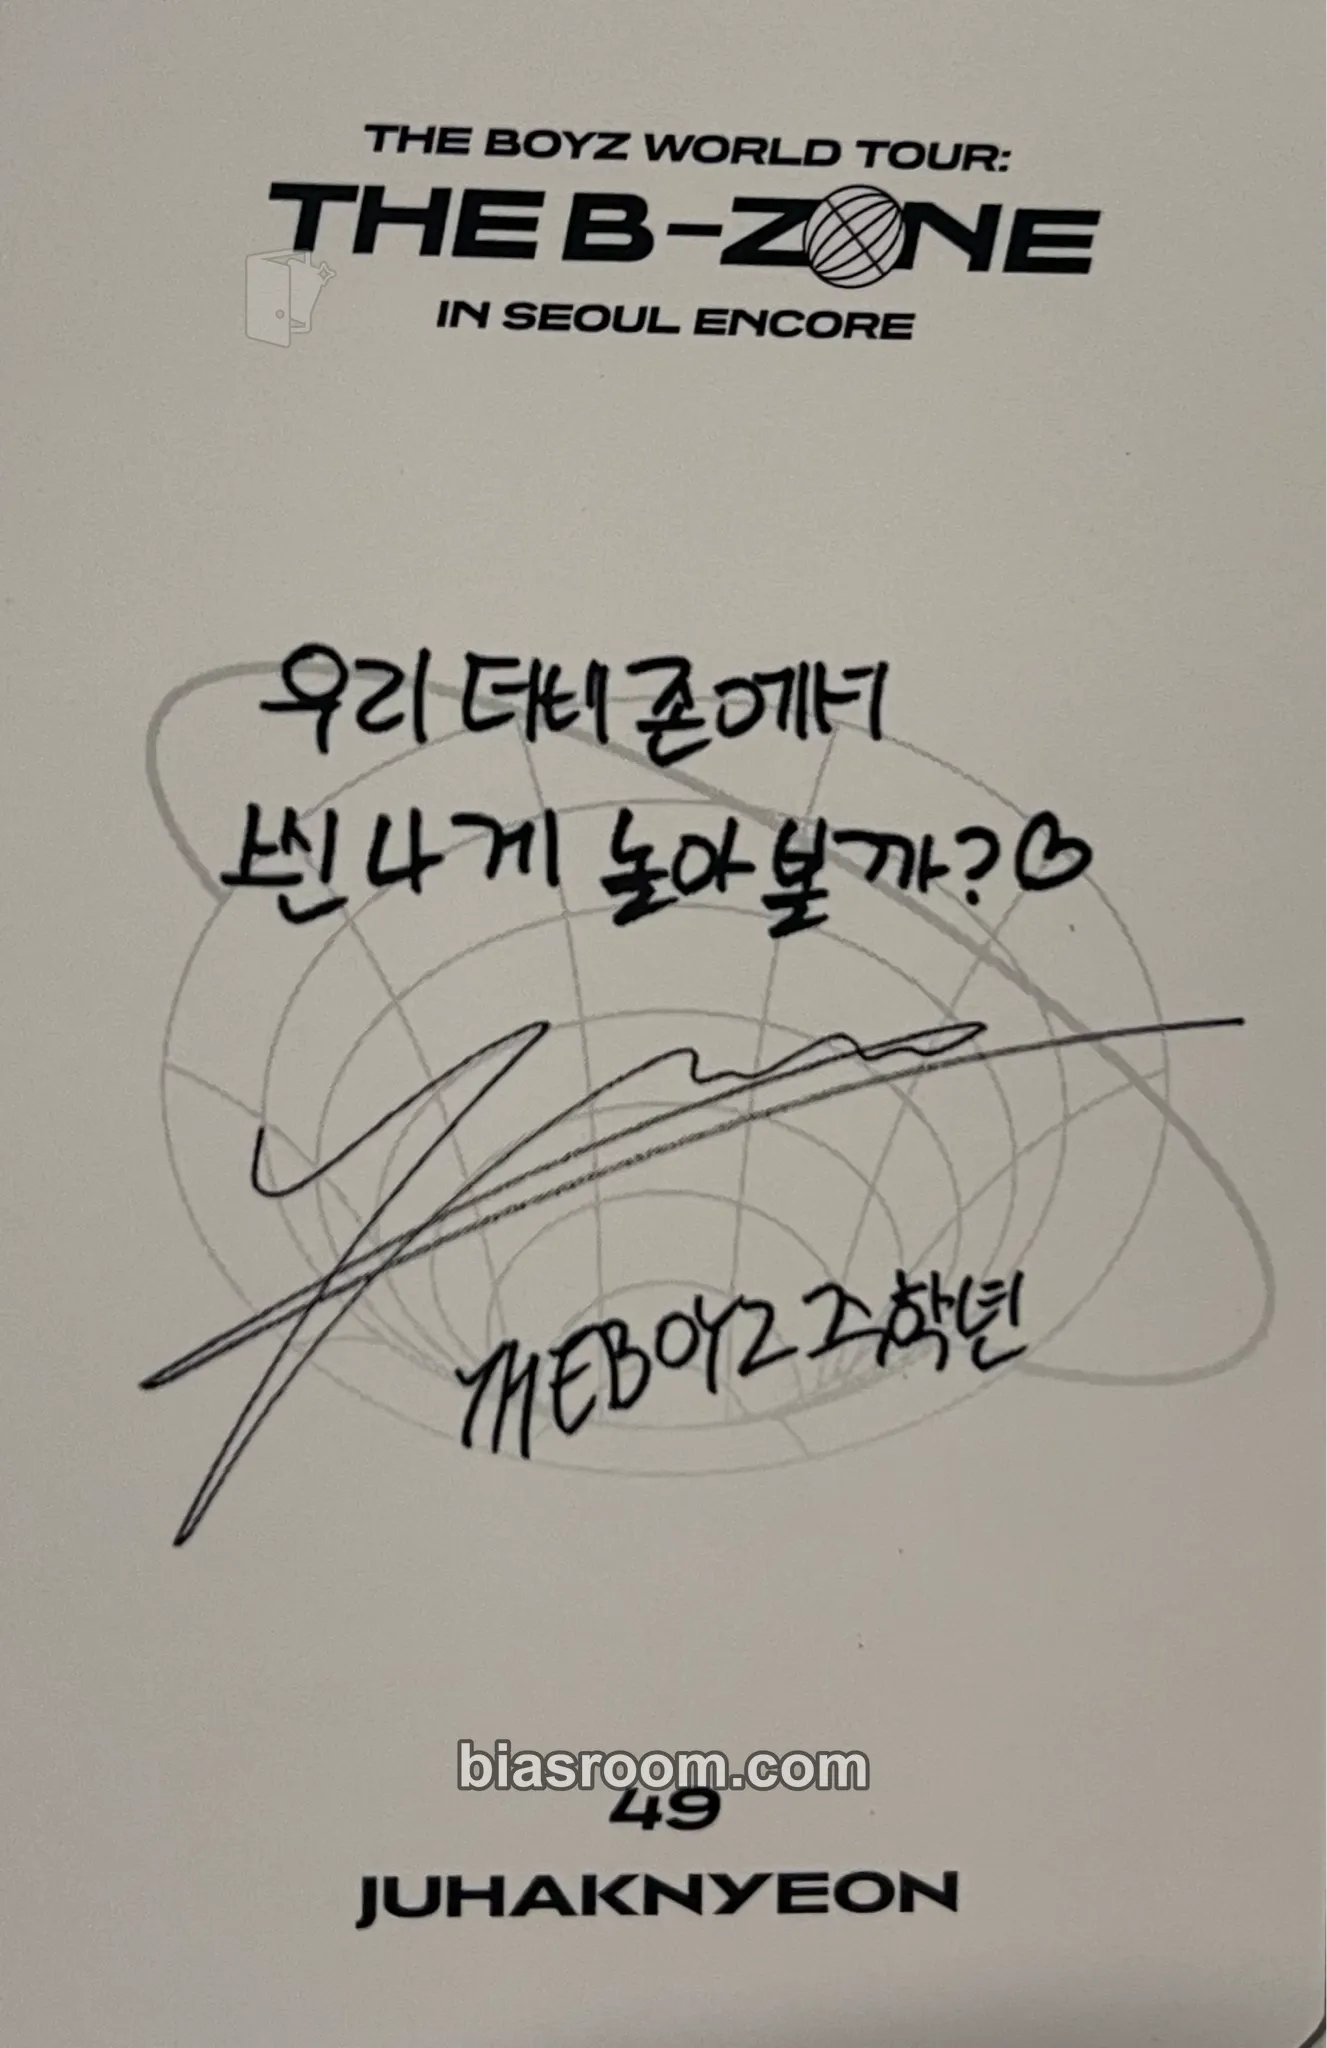 THE BOYZ WORLD TOUR:
THE B-ZONE
IN SEOUL ENCORE
우리 더비 존에서
씐나게 놀아볼까?♡
THEBOYZ 주학년
biasroom.com
49
JUHAKNYEON